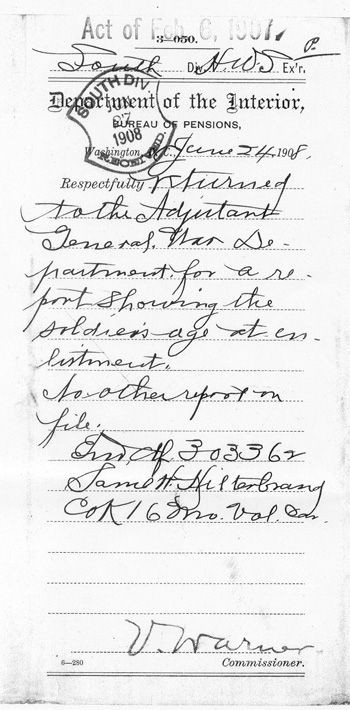 Act of Feb. 6, 1907.
P.
3—050.
South Div. H.W.S. Ex'r.
SOUTH DIV.
1908
Department of the Interior,
BUREAU OF PENSIONS,
Washington, June 24, 1908.
Respectfully returned
to the Adjutant
General, War De-
partment, for a re-
port showing the
soldier's age at en-
listment.
No other report on
file.
Inv. Ctf. 303362
James H. Hilterbrand
Co K 16 Mo. Vol. Cav.
V. Warner
6—280 Commissioner.